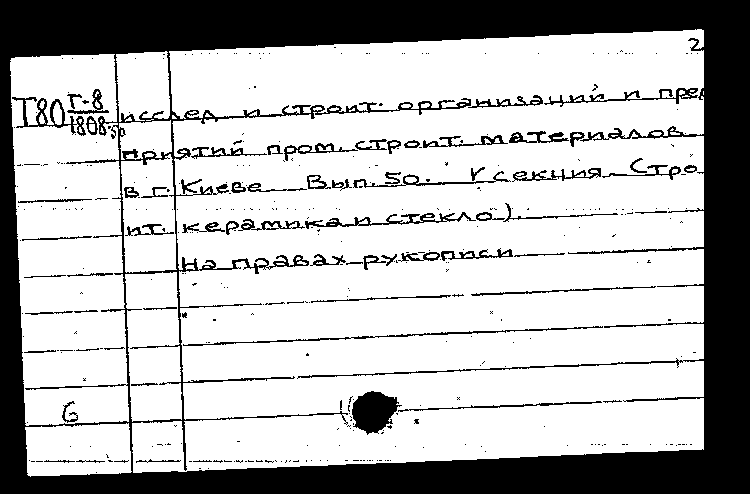 2
Т80 Г-8
1808:50
исслед и строит. организаций и пред
приятий пром. строит. материалов
в г. Киеве Вып. 50. V секция. Стро
ит. керамика и стекло).
На правах рукописи
6